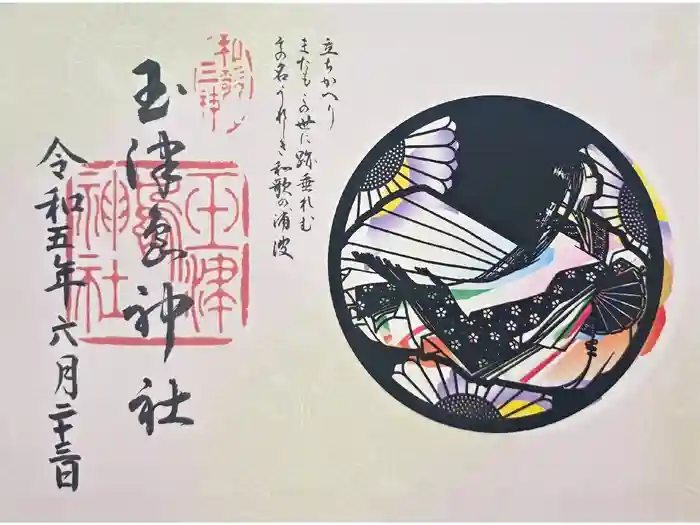 立ちかへり
またもこの世に跡垂れむ
その名うれしき和歌の浦波
和歌三神
玉津島神社
玉津島神社
令和五年六月二十三日